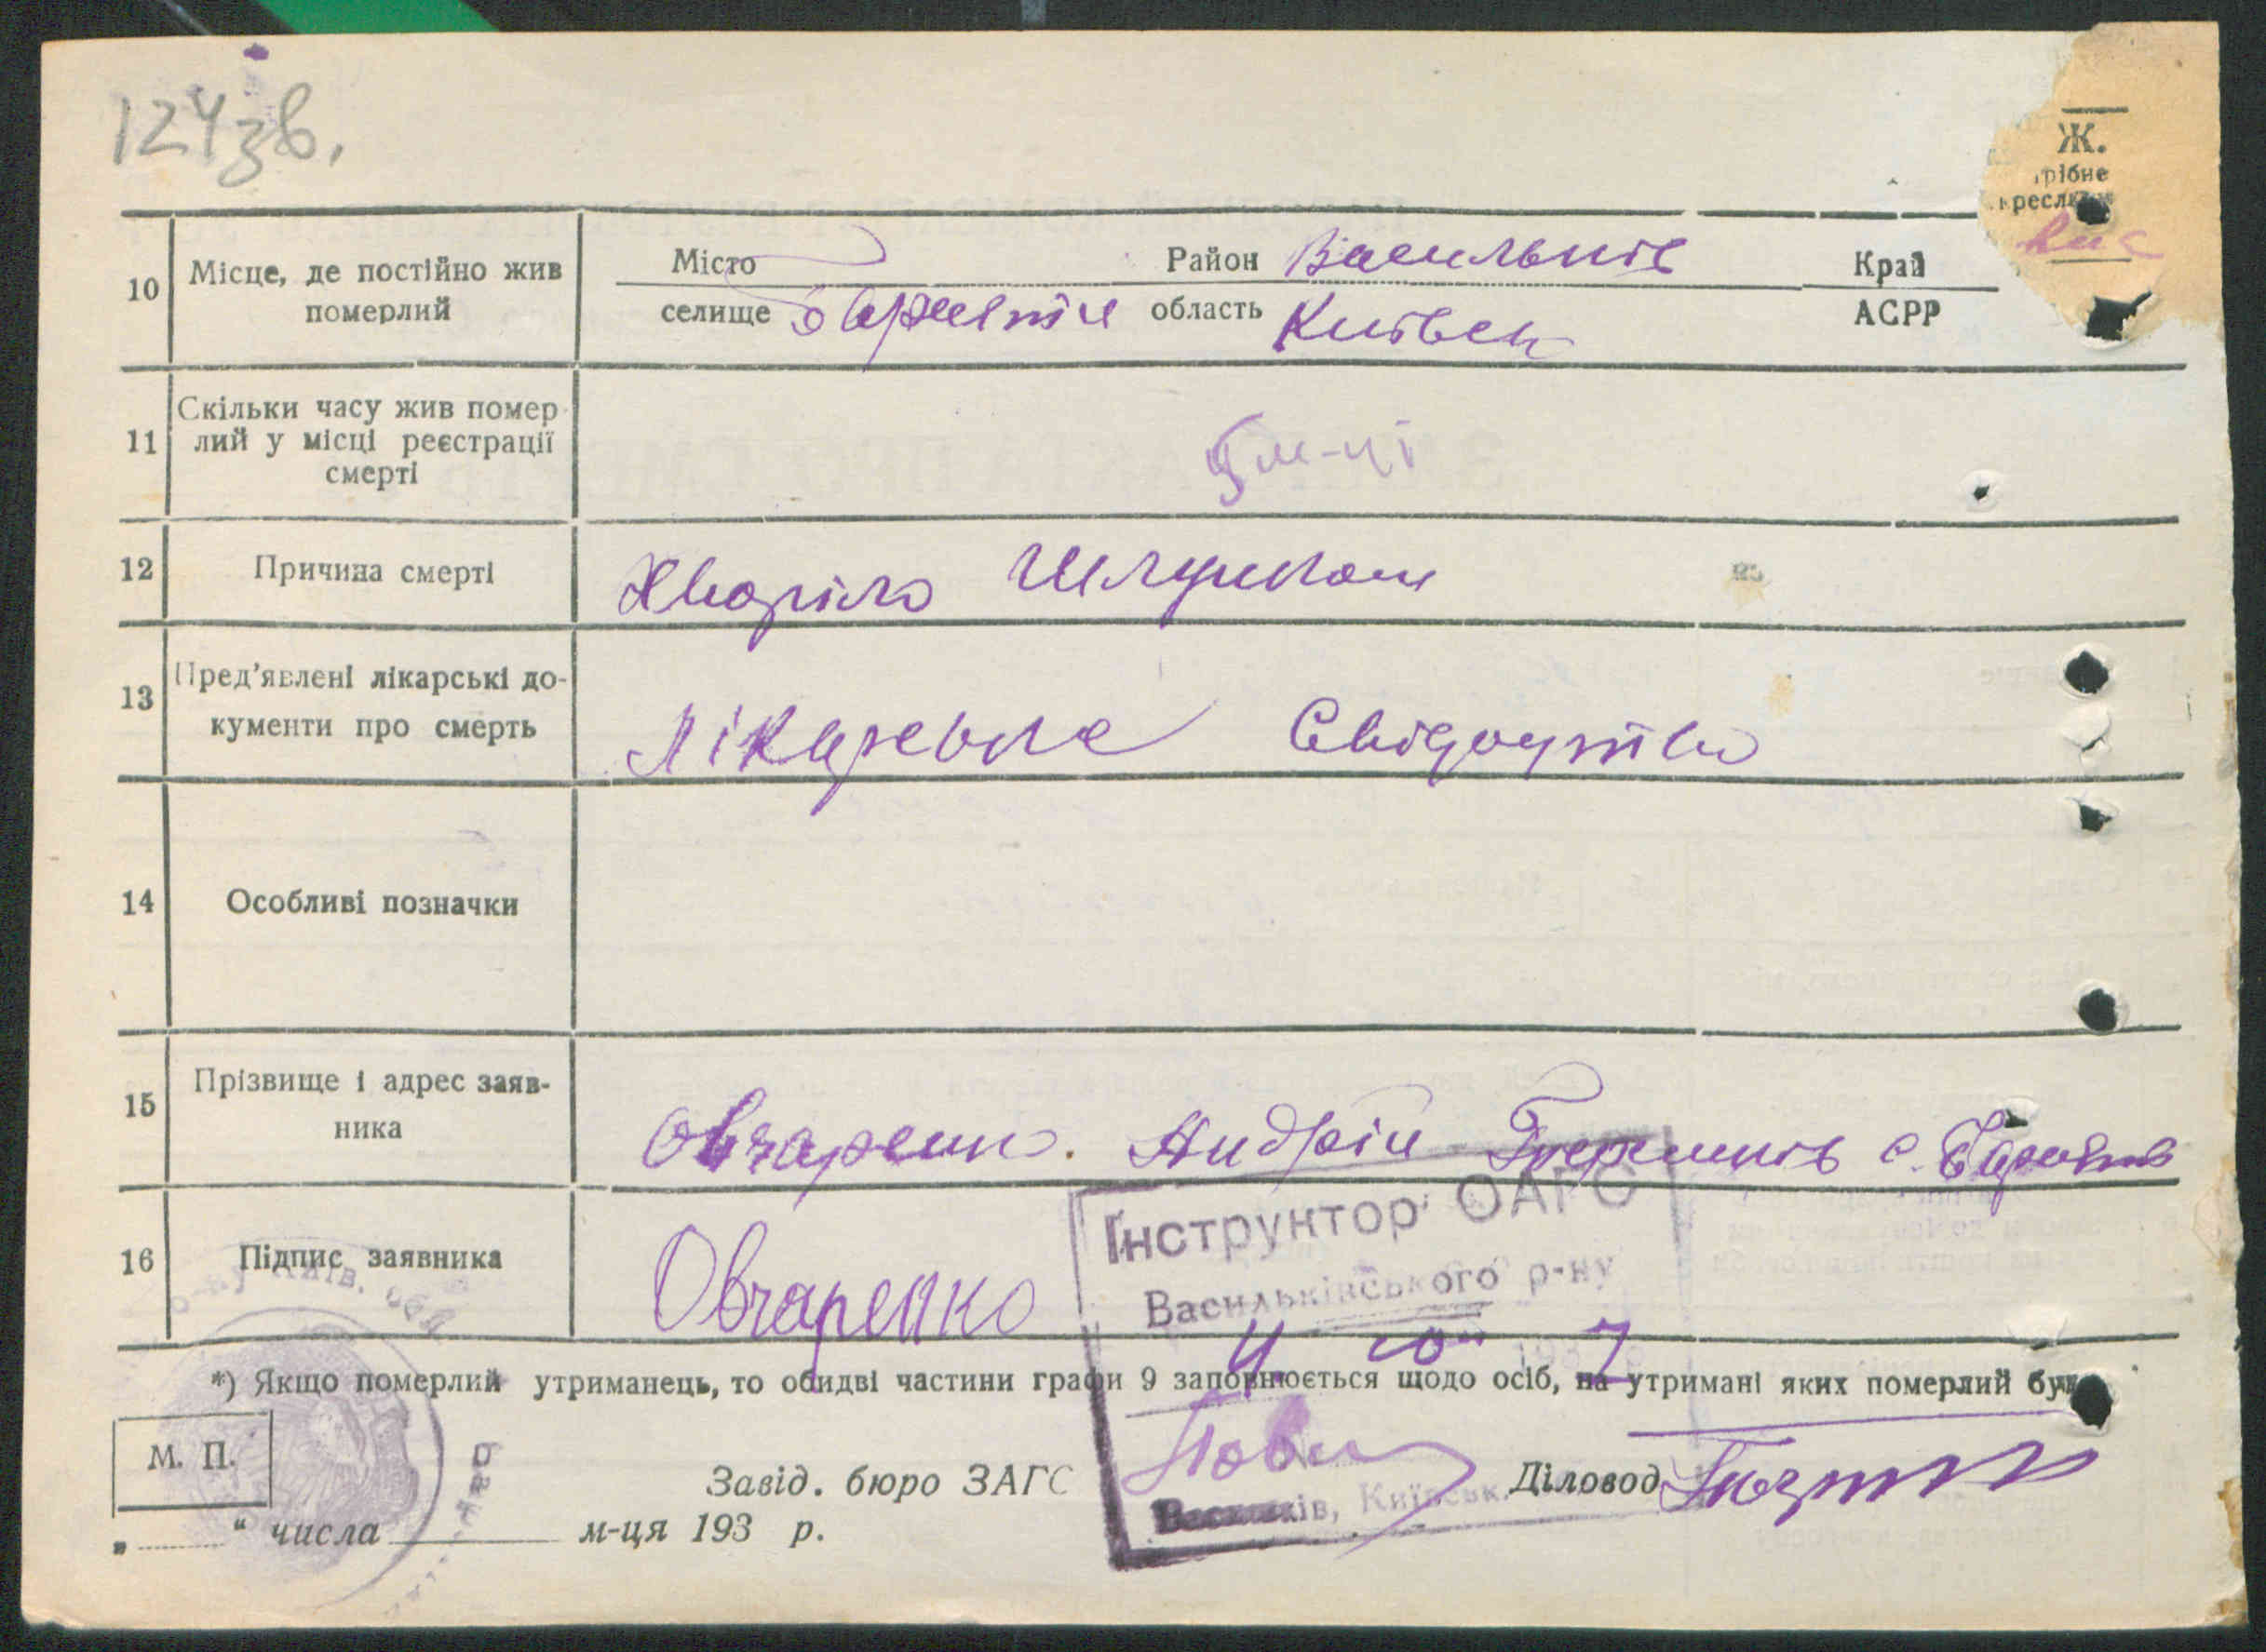 124зв.
Ж.
рібне
кресли
10 Місце, де постійно жив померлий
Місто Район Васильків Край
селище область Київськ АСРР
11 Скільки часу жив помер
лий у місці реєстрації
смерті
м-ці
12 Причина смерті Хворіло Шлунком
13 Пред'явлені лікарські до-
кументи про смерть
Лікарське Свідоцтво
14 Особливі позначки
15 Прізвище і адрес заяв-
ника
Овчаренко. Андрій с.
16 Підпис заявника Овчаренко
Інструктор ОАГС
Васильківського р-ну
*) Якщо померлий утриманець, то обидві частини графи 9 заповнюється щодо осіб, на утримані яких померлий був
М. П.
Завід. бюро ЗАГС Діловод
Київськ.
„ “ числа м-ця 193 р.